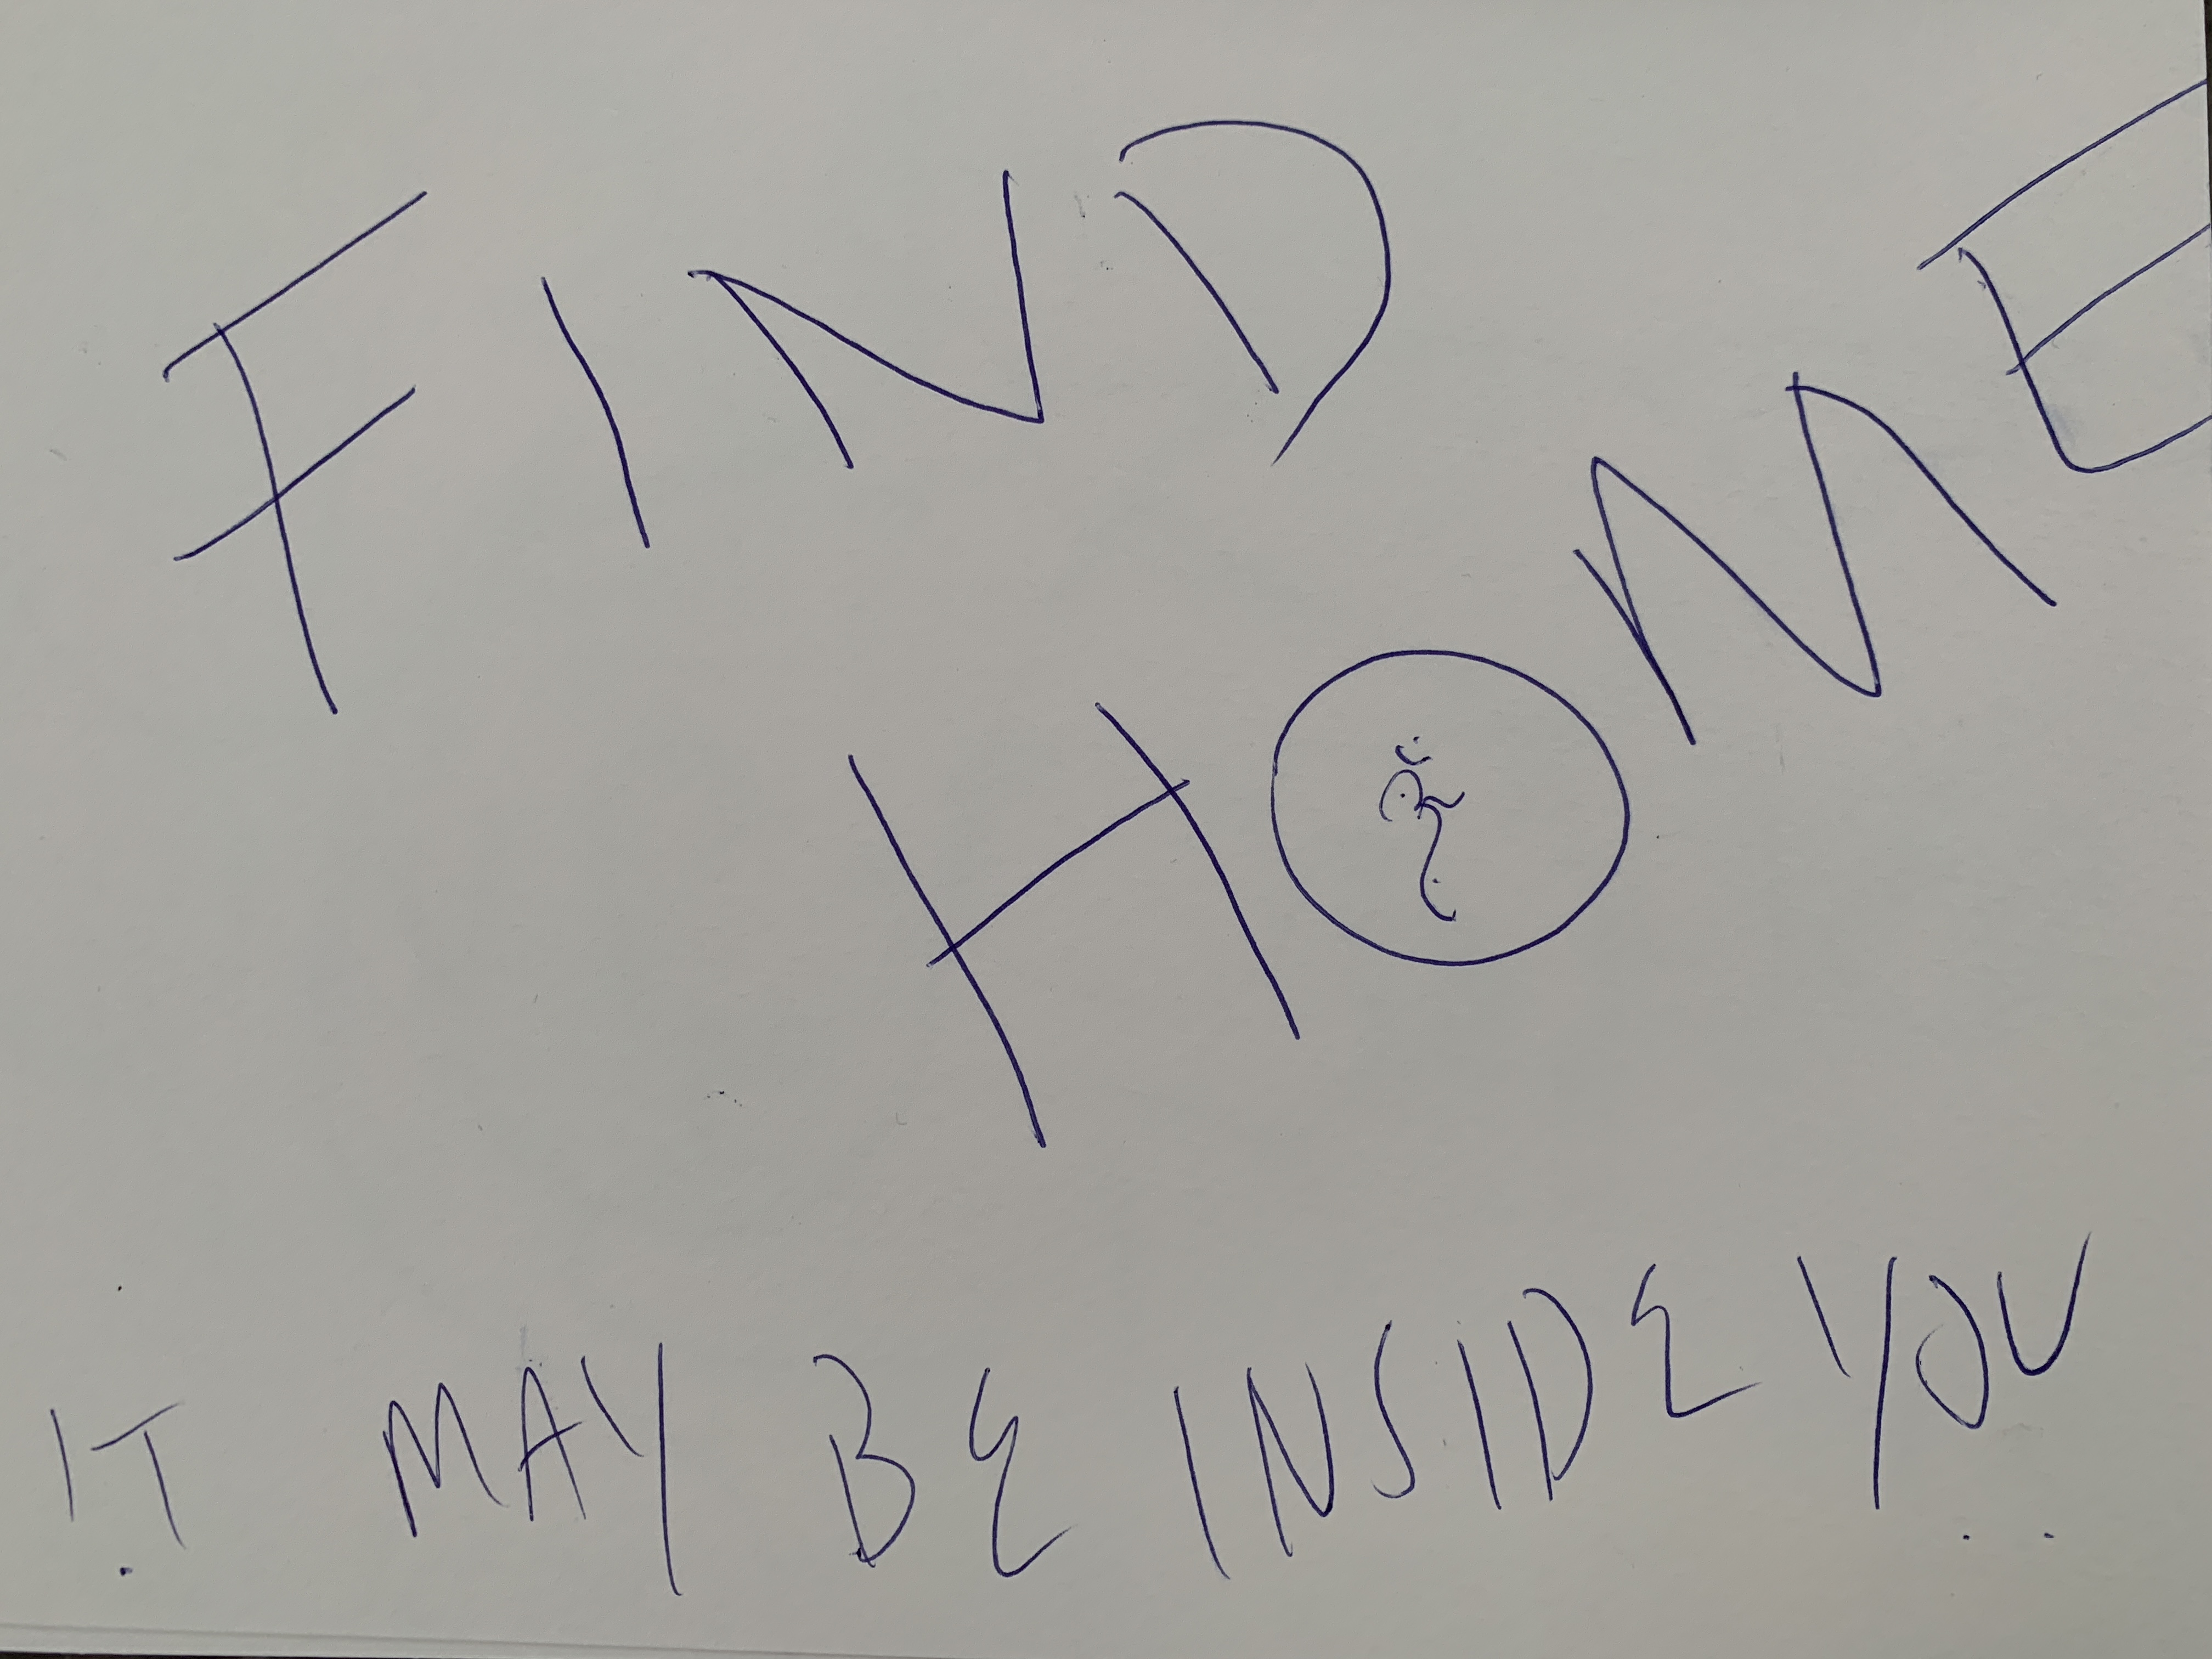 FIND
HOME
IT MAY BE INSIDE YOU